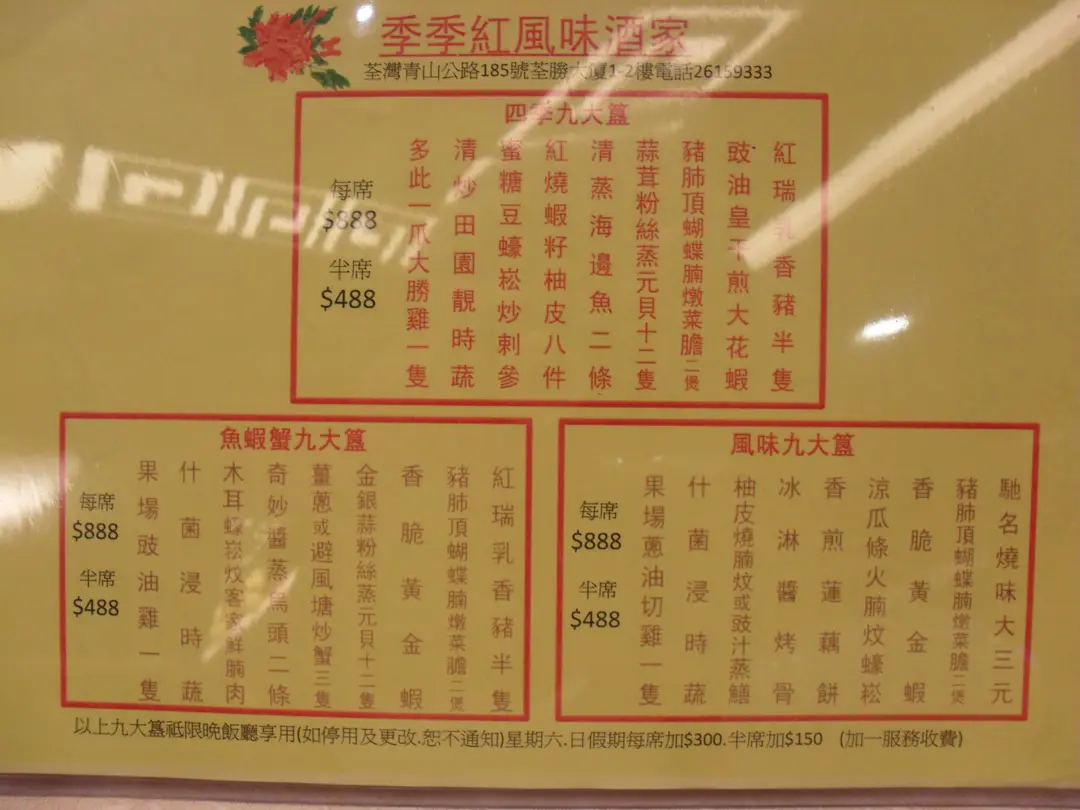 季季紅風味酒家
荃灣青山公路185號荃勝大廈1-2樓電話26159333
四季九大簋
紅瑞乳香豬半隻
豉油皇干煎大花蝦
豬肺頂蝴蝶腩燉菜膽二煲
蒜茸粉絲蒸元貝十二隻
清蒸海邊魚二條
紅燒蝦籽柚皮八件
蜜糖豆蠔崧炒剌參
清炒田園靚時蔬
多此一爪大勝雞一隻
每席
$888
半席
$488
魚蝦蟹九大簋
紅瑞乳香豬半隻
豬肺頂蝴蝶腩燉菜膽二煲
香脆黃金蝦
金銀蒜粉絲蒸元貝十二隻
薑蔥或避風塘炒蟹三隻
奇妙醬蒸烏頭二條
木耳蠔崧炆客家鮮腩肉
什菌浸時蔬
果場豉油雞一隻
每席
$888
半席
$488
風味九大簋
馳名燒味大三元
豬肺頂蝴蝶腩燉菜膽二煲
香脆黃金蝦
涼瓜條火腩炆蠔崧
香煎蓮藕餅
冰淋醬烤骨
柚皮燒腩炆或豉汁蒸鱔
什菌浸時蔬
果場蔥油切雞一隻
每席
$888
半席
$488
以上九大簋祗限晚飯廳享用(如停用及更改.恕不通知)星期六.日假期每席加$300.半席加$150 (加一服務收費)